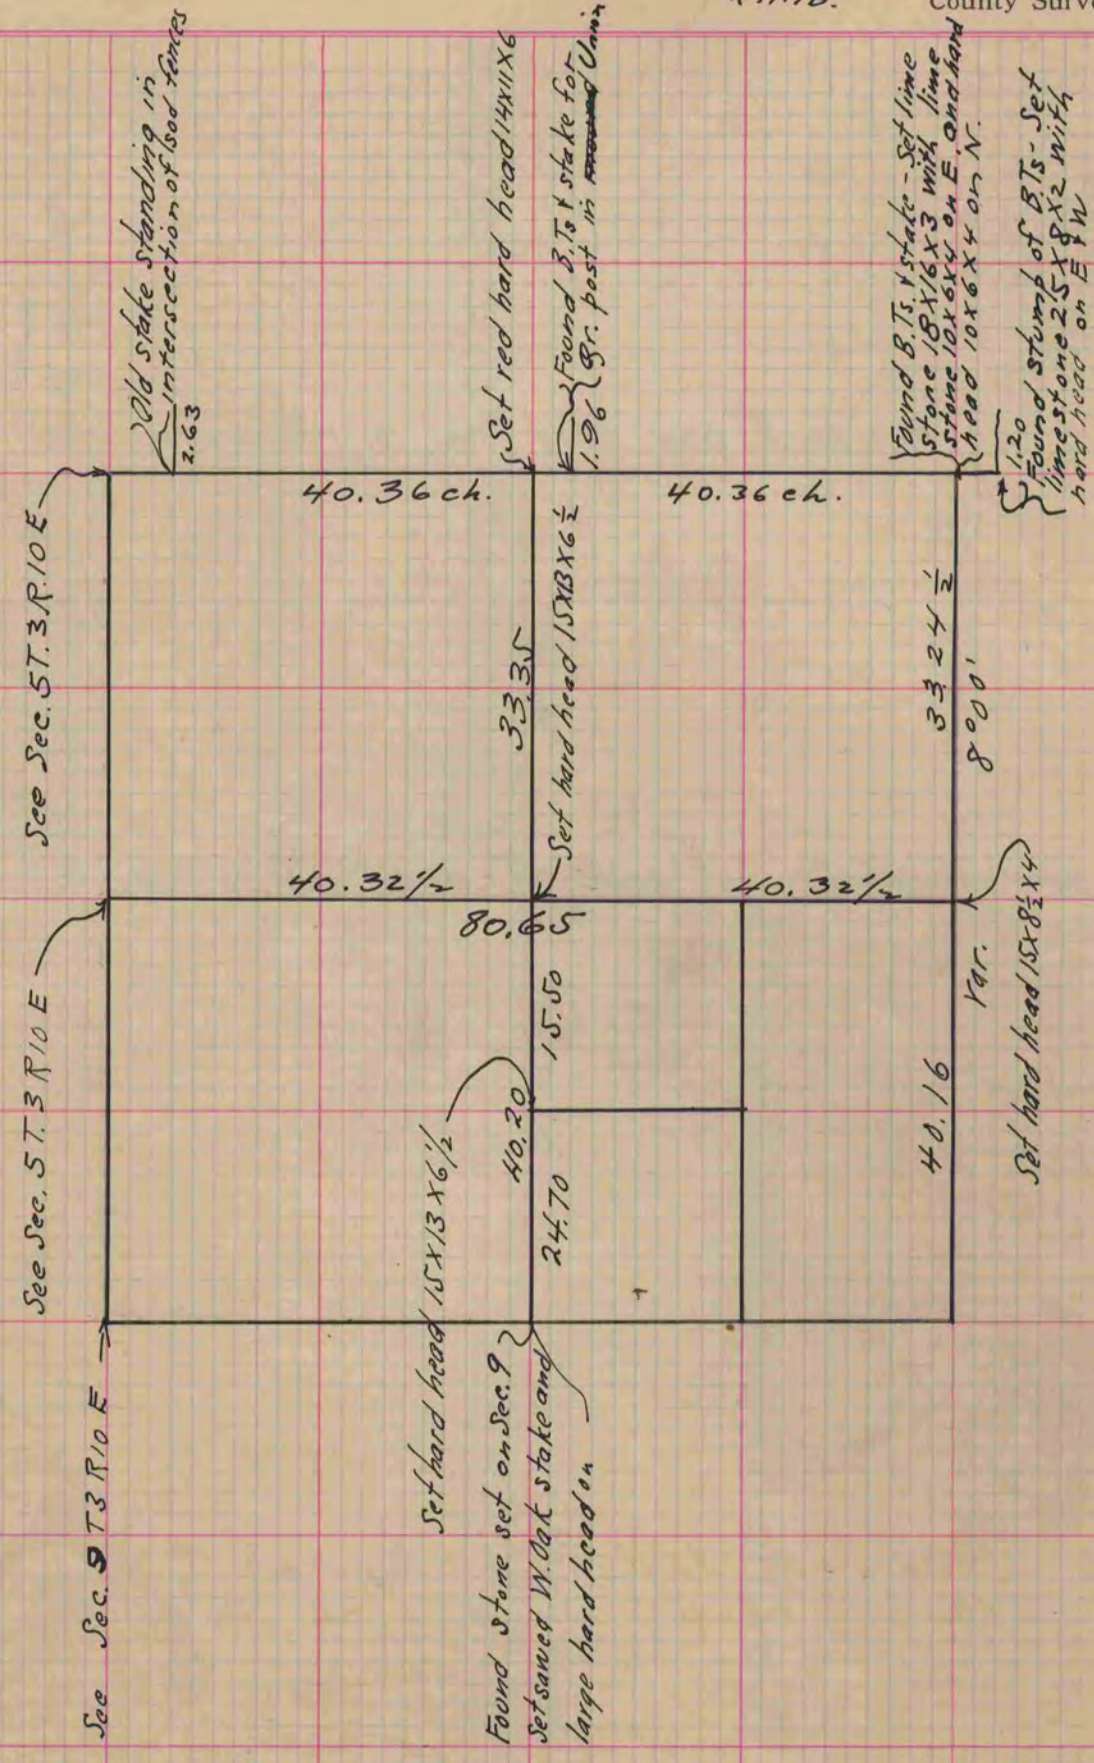 County Surve
Old stake standing in
intersection of sod fences
2.63
Set red hard head 14x11x6
Found B.Ts & stake for
Gr. post in mound Union
1.96
Found B.Ts. & stake - Set lime
stone 18x16x3 with lime
stone 10x6x4 on E. and hard
head 10x6x4 on N.
1.20
Found stump of B.Ts - Set
limestone 25x8x2 with
hard head on E & W
See Sec. 5 T. 3 R. 10 E
40.36 ch.
40.36 ch.
33.35
Set hard head 15x13x6 ½
33 24 ½
8°00'
See Sec. 5 T. 3 R 10 E
40.32 ½
40.32 ½
80.65
15.50
40.20
24.70
40.16
Var.
Set hard head 15x8½x4
Set hard head 15x13x6½
See Sec. 9 T3 R10 E
Found stone set on Sec. 9
Set sawed W. Oak stake and
large hard head on